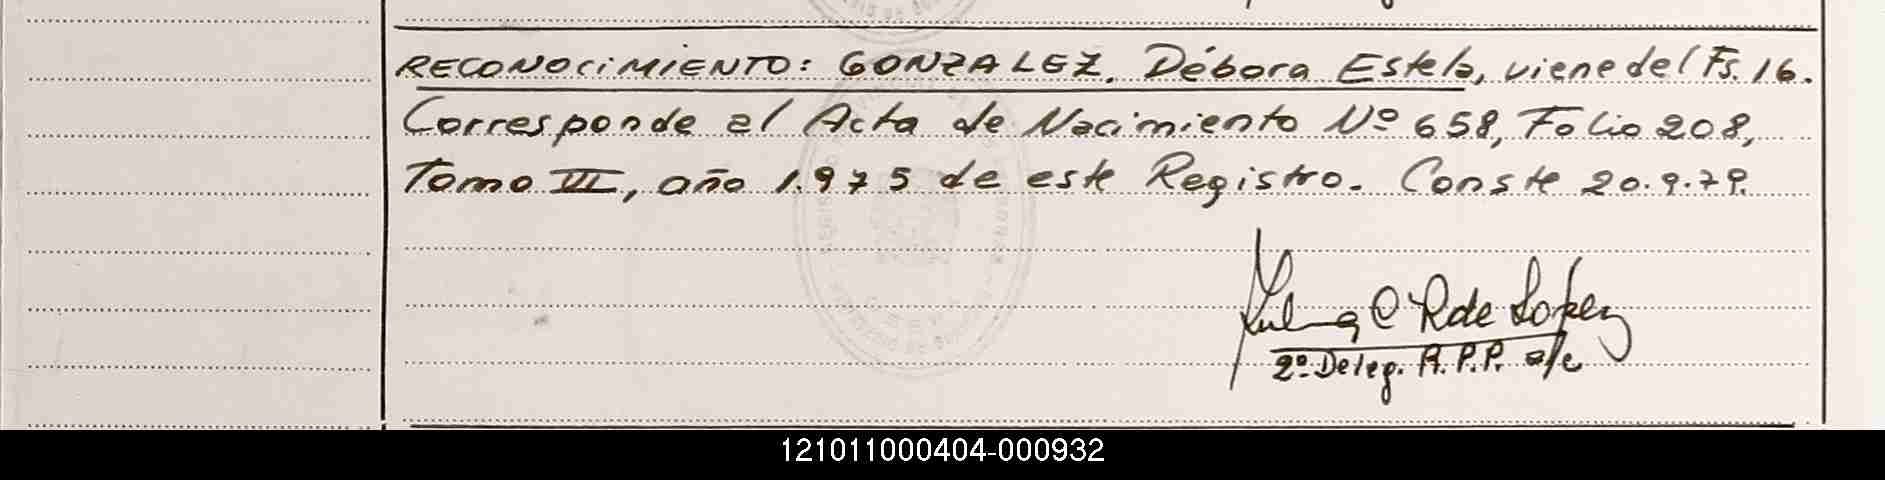 RECONOCIMIENTO: GONZALEZ, Débora Estela, viene del Fs. 16.
Corresponde al Acta de Nacimiento Nº 658, Folio 208,
Tomo III, año 1.975 de este Registro. Conste 20.9.79.
Zulma C R de Lopez
2º Deleg. R.P.P. a/c
121011000404-000932